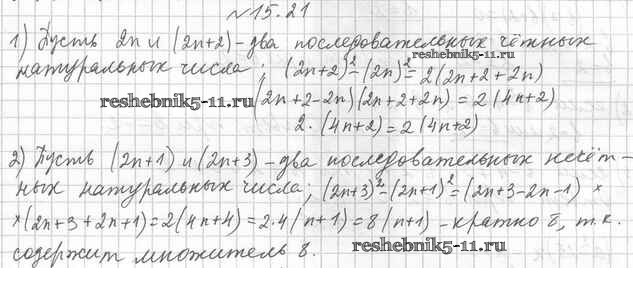 №15.21
1) Пусть 2n и (2n+2) – два последовательных чётных
натуральных числа; (2n+2)²-(2n)²=2(2n+2+2n)
reshebnik5-11.ru
(2n+2-2n)(2n+2+2n)=2(4n+2)
2·(4n+2)=2(4n+2)
reshebnik5-11.ru
2) Пусть (2n+1) и (2n+3) – два последовательных нечёт-
ных натуральных числа; (2n+3)²-(2n+1)²=(2n+3-2n-1)×
×(2n+3+2n+1)=2(4n+4)=2·4(n+1)=8(n+1) – кратно 8, т.к.
содержит множитель 8.
reshebnik5-11.ru